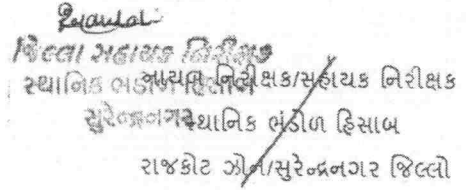 જિલ્લા સહાયક નિરીક્ષક
સ્થાનિક ભંડોળ હિસાબ
સુરેન્દ્રનગર
નાયબ નિરીક્ષક/સહાયક નિરીક્ષક
સ્થાનિક ભંડોળ હિસાબ
રાજકોટ ઝોન/સુરેન્દ્રનગર જિલ્લો